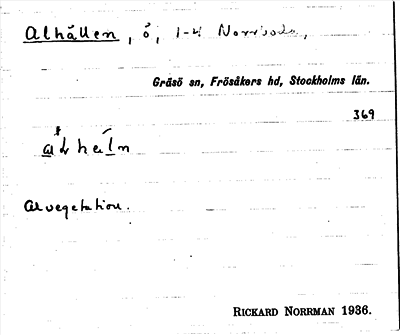 Alhällen, ö, 1-4 Norrboda,
Gräsö sn, Frösåkers hd, Stockholms län.
369
Alvegetation.
RICKARD NORRMAN 1936.